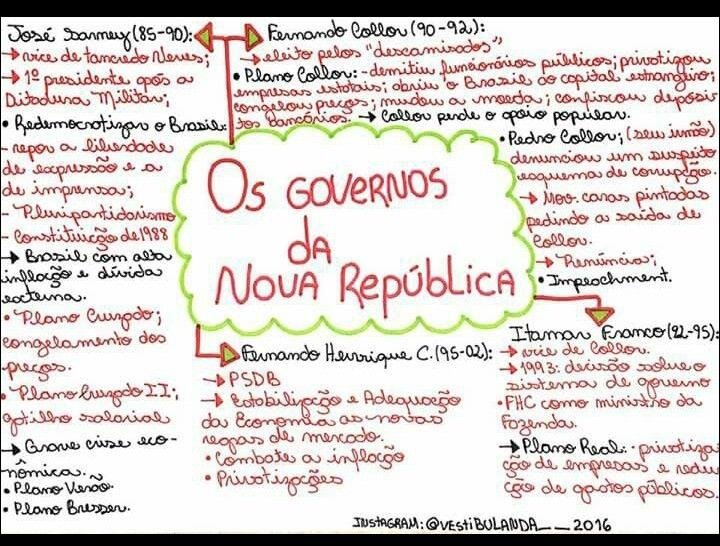 José Sarney (85-90):
→ vice de Tancredo Neves;
→ 1º presidente após a
Ditadura Militar;
• Redemocratizar o Brasil:
- repor a liberdade
de expressão e a
de imprensa;
- Pluripartidarismo
- Constituição de 1988
→ Brasil com alta
inflação e dívida
externa.
• Plano Cruzado;
congelamento dos
preços.
• Plano Cruzado II;
gatilho salarial
→ Grave crise eco-
nômica.
• Plano Verão.
• Plano Bresser.
Fernando Collor (90-92):
→ eleito pelos "descamisados",
• Plano Collor: - demitiu funcionários públicos; privatizou
empresas estatais; abriu o Brasil ao capital estrangeiro;
congelou preços; mudou a moeda; confiscou depósi-
tos bancários. → Collor perde o apoio popular.
• Pedro Collor; (seu irmão)
denunciou um suspeito
esquema de corrupção.
→ Mov. caras pintadas
pedindo a saída de
Collor.
→ Renúncia;
• Impeachment.
Os GOVERNOS
DA
NOVA REPÚBLICA
Itamar Franco (92-95):
→ vice de Collor.
→ 1993: decisão sobre o
sistema de governo
• FHC como ministro da
Fazenda.
→ Plano Real: - privatiza
ção de empresas e redu
ção de gastos públicos.
Fernando Henrique C. (95-02):
→ PSDB
→ Estabilização e Adequação
da Economia as novas
regras de mercado.
• Combate a inflação
• Privatizações
INSTAGRAM: @VESTIBULANDA__2016